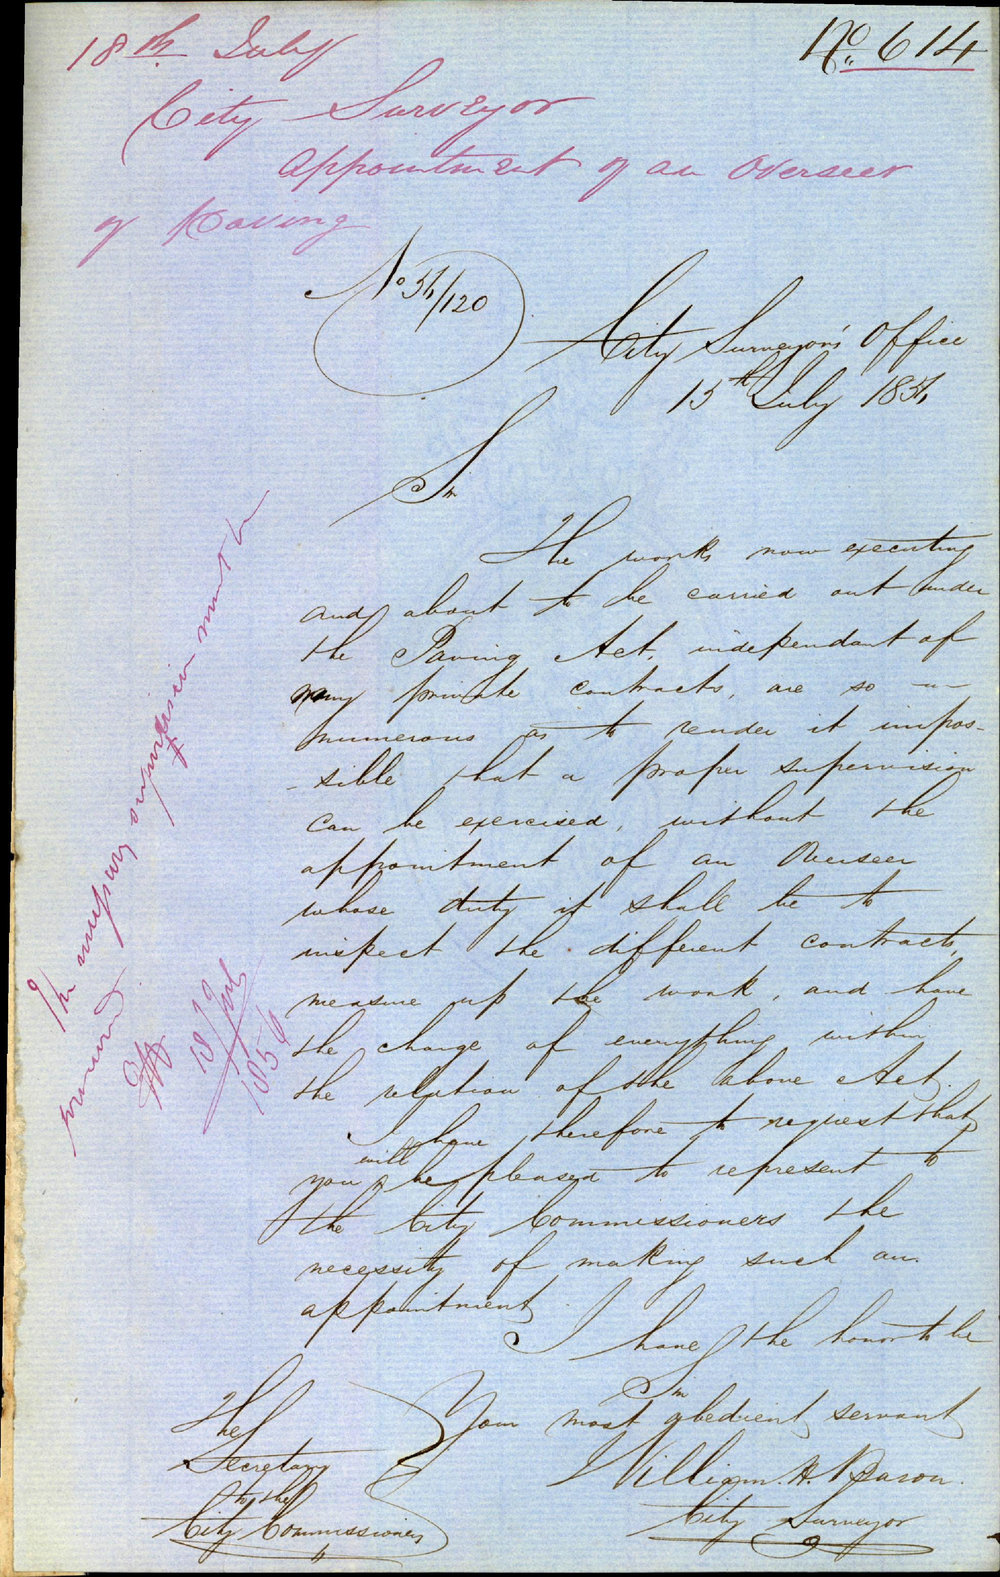 No. 614
18th July
City Surveyor
Appointment of an Overseer
of Paving
No 56/120
City Surveyor's Office
15th July 1856
Sir
The works now executing
and about to be carried out under
the Paving Act, independant of
many private contracts, are so
numerous as to render it impos-
-sible that a proper supervision
can be exercised, without the
appointment of an Overseer
whose duty it shall be to
inspect the different contracts,
measure up the work, and have
the charge of everything within
the relation of the above Act.
I have therefore to request that
you will be pleased to represent to
the City Commissioners the
necessity of making such an
appointment.
I have the honor to be
Sir
Your most obedient servant
William. H.
City Surveyor
The
Secretary
to the
City Commissioners
The necessary supervision must be
procured
18 July
1856